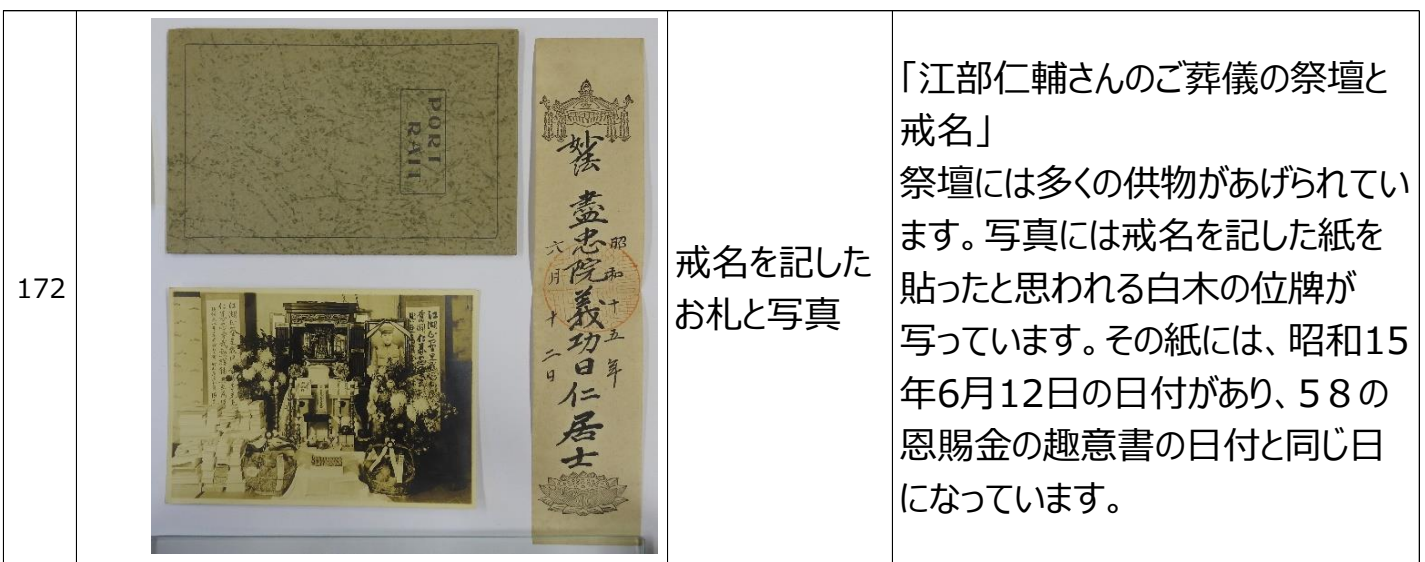 172
PORT
RAIT
妙法 盡忠院義功日仁居士
昭和十五年
六月十二日
戒名を記した
お札と写真
「江部仁輔さんのご葬儀の祭壇と
戒名」
祭壇には多くの供物があげられてい
ます。写真には戒名を記した紙を
貼ったと思われる白木の位牌が
写っています。その紙には、昭和15
年6月12日の日付があり、５８の
恩賜金の趣意書の日付と同じ日
になっています。